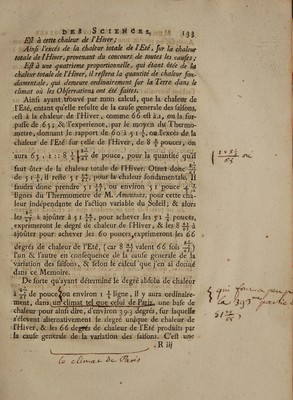 DES SCIENCES. 133
Est à cette chaleur de l'Hiver;
Ainsi l'excés de la chaleur totale de l'Eté, sur la chaleur
totale de l'Hiver, provenant du concours de toutes les causes;
Est à une quatrieme proportionelle, qui étant ôtée de la
chaleur totale de l'Hiver, il restera la quantité de chaleur fon-
damentale, qui demeure ordinairement sur la Terre dans le
climat où les Observations ont été faites.
Ainsi ayant trouvé par mon calcul, que la chaleur de
l'Eté, entant qu'elle resulte de la cause generale des saisons,
est à la chaleur de l'Hiver, comme 66 est à 1, ou la sur-
passe de 65; & l'experience, par le moyen du Thermo-
metre, donnant le rapport de 60 à 51
chaleur de l'Eté sur celle de l'Hiver, de 8
aura 65 . 1 :: 8
de pouce, pour la quantité qu'il
faut ôter de la chaleur totale de l'Hiver.
pour la chaleur fondamentale. Il
faudra donc prendre 51
lignes du Thermometre de M. Amontons, pour cette cha-
leur indépendante de l'action variable du Soleil; & alors
les
à ajoûter à 51
pour achever les 51
pouces,
exprimeront le degré de chaleur de l'Hiver, & les 8
ajoûter pour achever les 60 pouces, exprimeront les 66
degrés de chaleur de l'Eté, (car 8
valent 66 fois
l'un & l'autre en consequence de la cause generale de la
variation des saisons, & selon le calcul que j'en ai donné
dans ce Memoire.
De sorte qu'ayant déterminé le degré absolu de chaleur
à
de pouce,
ou environ 1
ligne, il y aura ordinaire-
ment, dans un climat tel que celui de Paris, une base de
chaleur pour ainsi dire, d'environ 393 degrés, sur laquelle
s'élevent alternativement le degré unique de chaleur de
l'Hiver, & les 66 degrés de chaleur de l'Eté produits par
la cause generale de la variation des saisons. C'est une
R iij
le climat de Paris